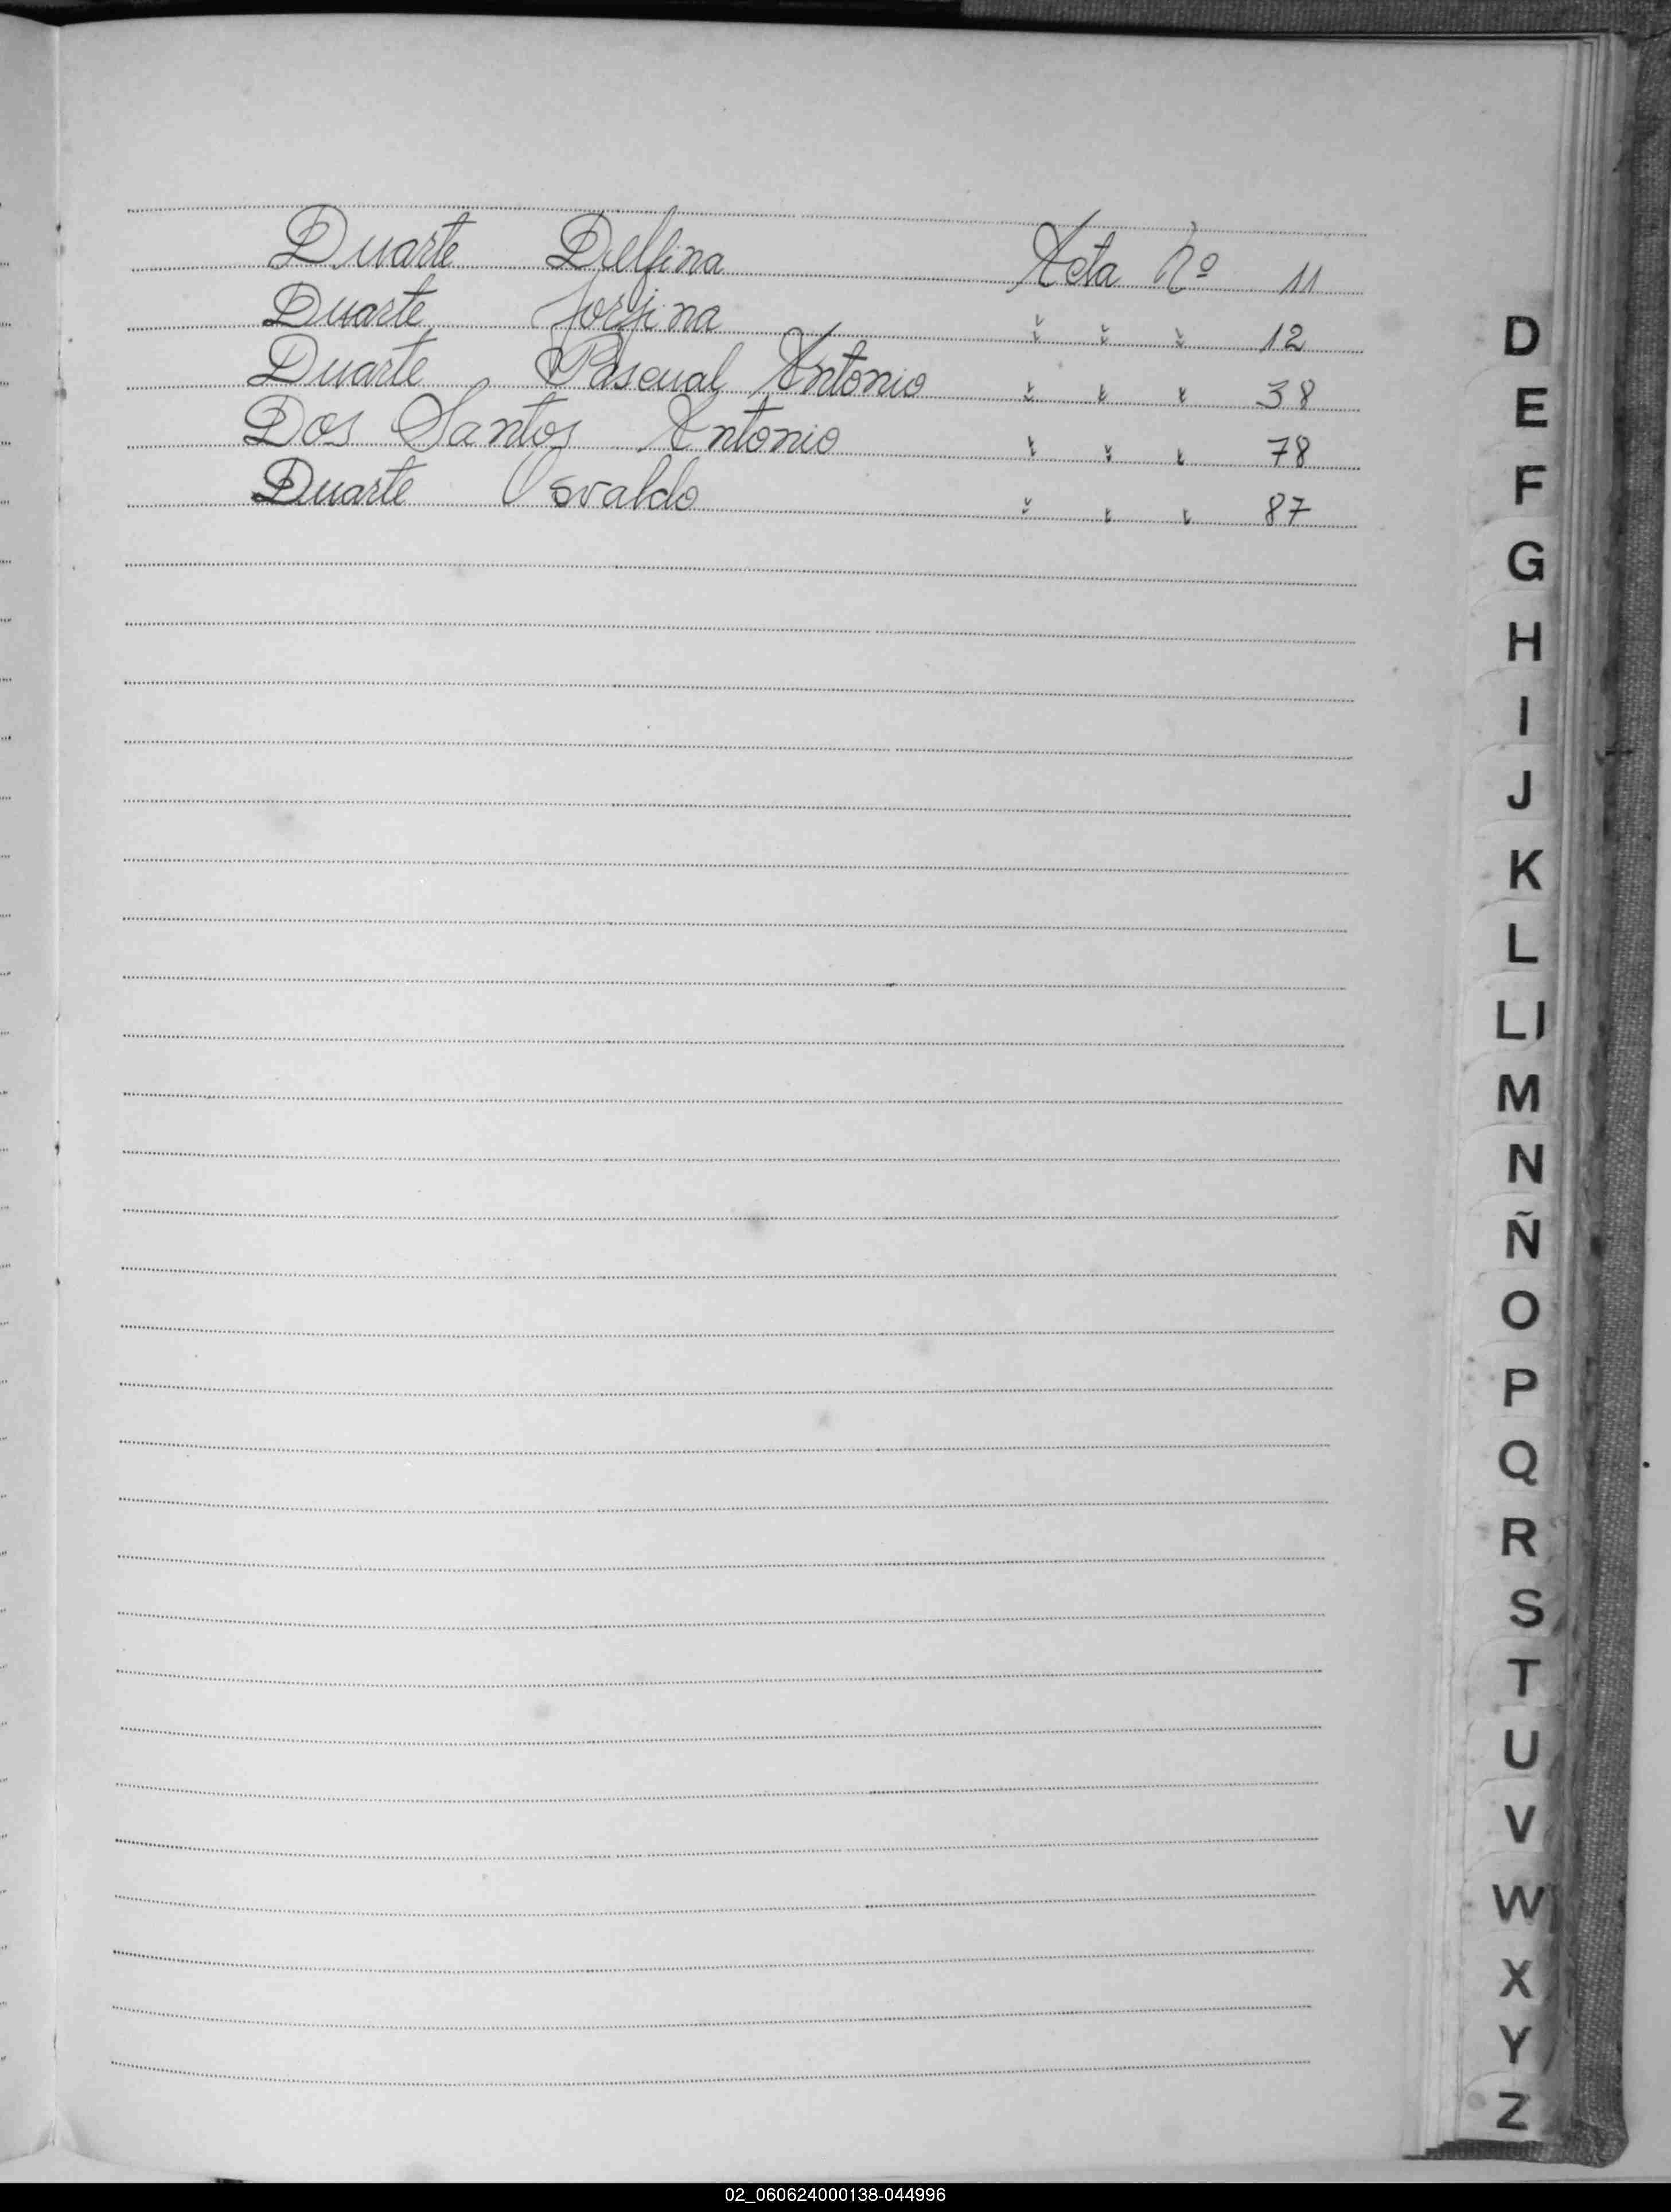 Duarte Delfina Acta Nº 11
Duarte Jorjina " " " 12
Duarte Pascual Antonio " " " 38
Dos Santos Antonio " " " 78
Duarte Osvaldo " " " 87
D
E
F
G
H
I
J
K
L
Ll
M
N
Ñ
O
P
Q
R
S
T
U
V
W
X
Y
Z
02_060624000138-044996